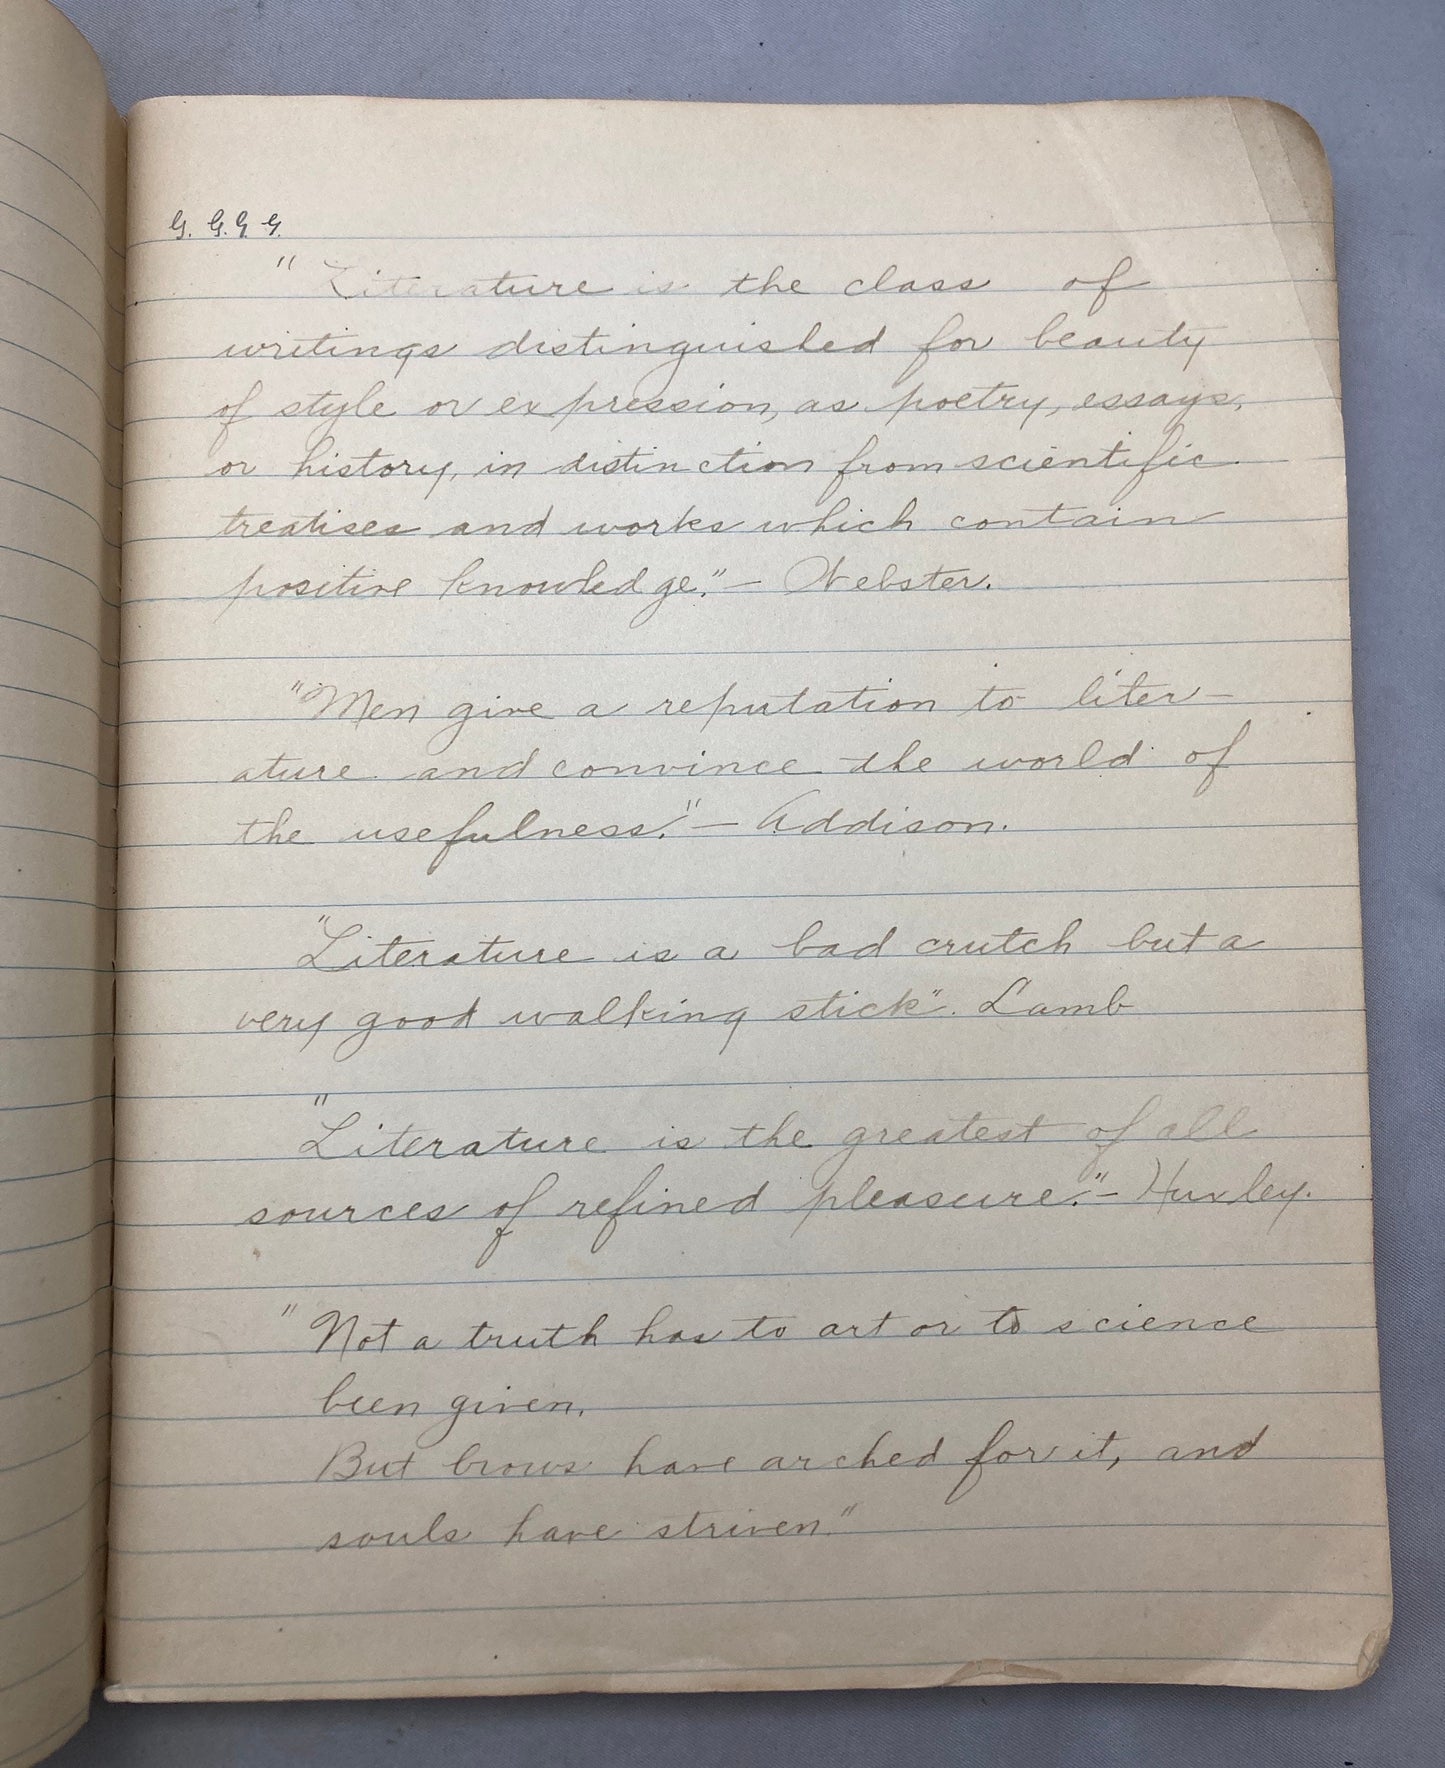 G. G. G. G.
" Literature is the class of
writings distinguished for beauty
of style or expression, as poetry, essays,
or history, in distinction from scientific
treatises and works which contain
positive knowledge." — Webster.
"Men give a reputation to liter-
ature and convince the world of
the usefulness." — Addison.
"Literature is a bad crutch but a
very good walking stick". Lamb
"Literature is the greatest of all
sources of refined pleasure." — Huxley.
" Not a truth has to art or to science
been given,
But brows have arched for it, and
souls have striven"